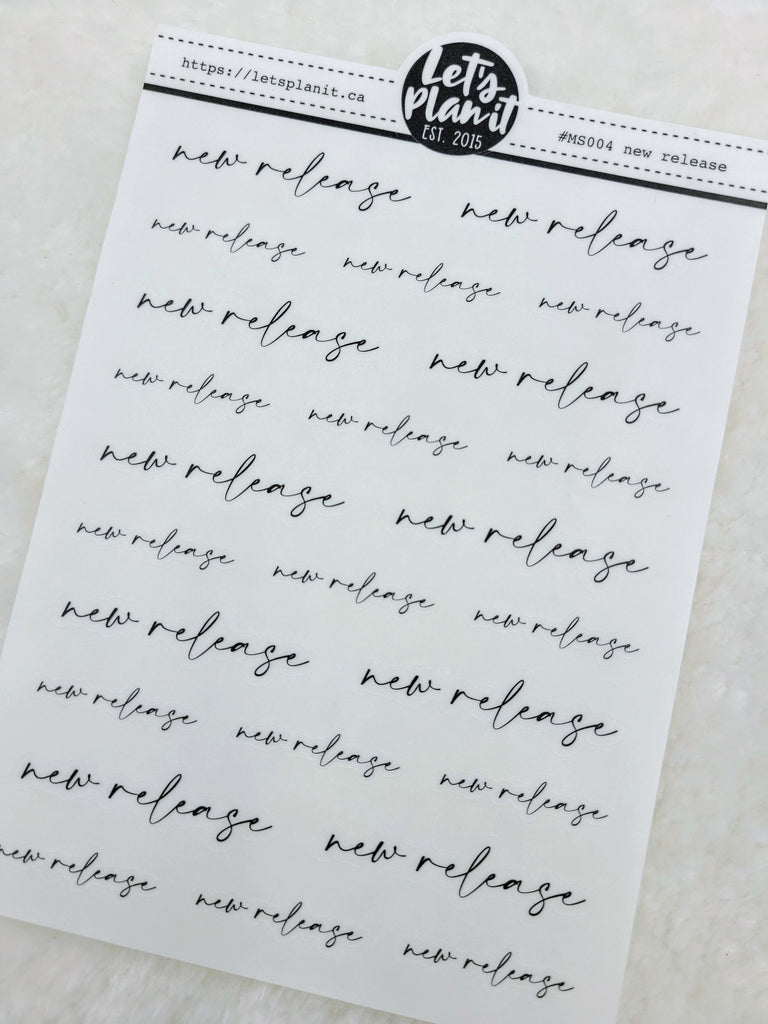 https://letsplanit.ca
Let's
Plan it
EST. 2015
#MS004 new release
new release new release
new release new release new release
new release new release
new release new release new release
new release new release
new release new release new release
new release new release
new release new release new release
new release new release
new release new release new release